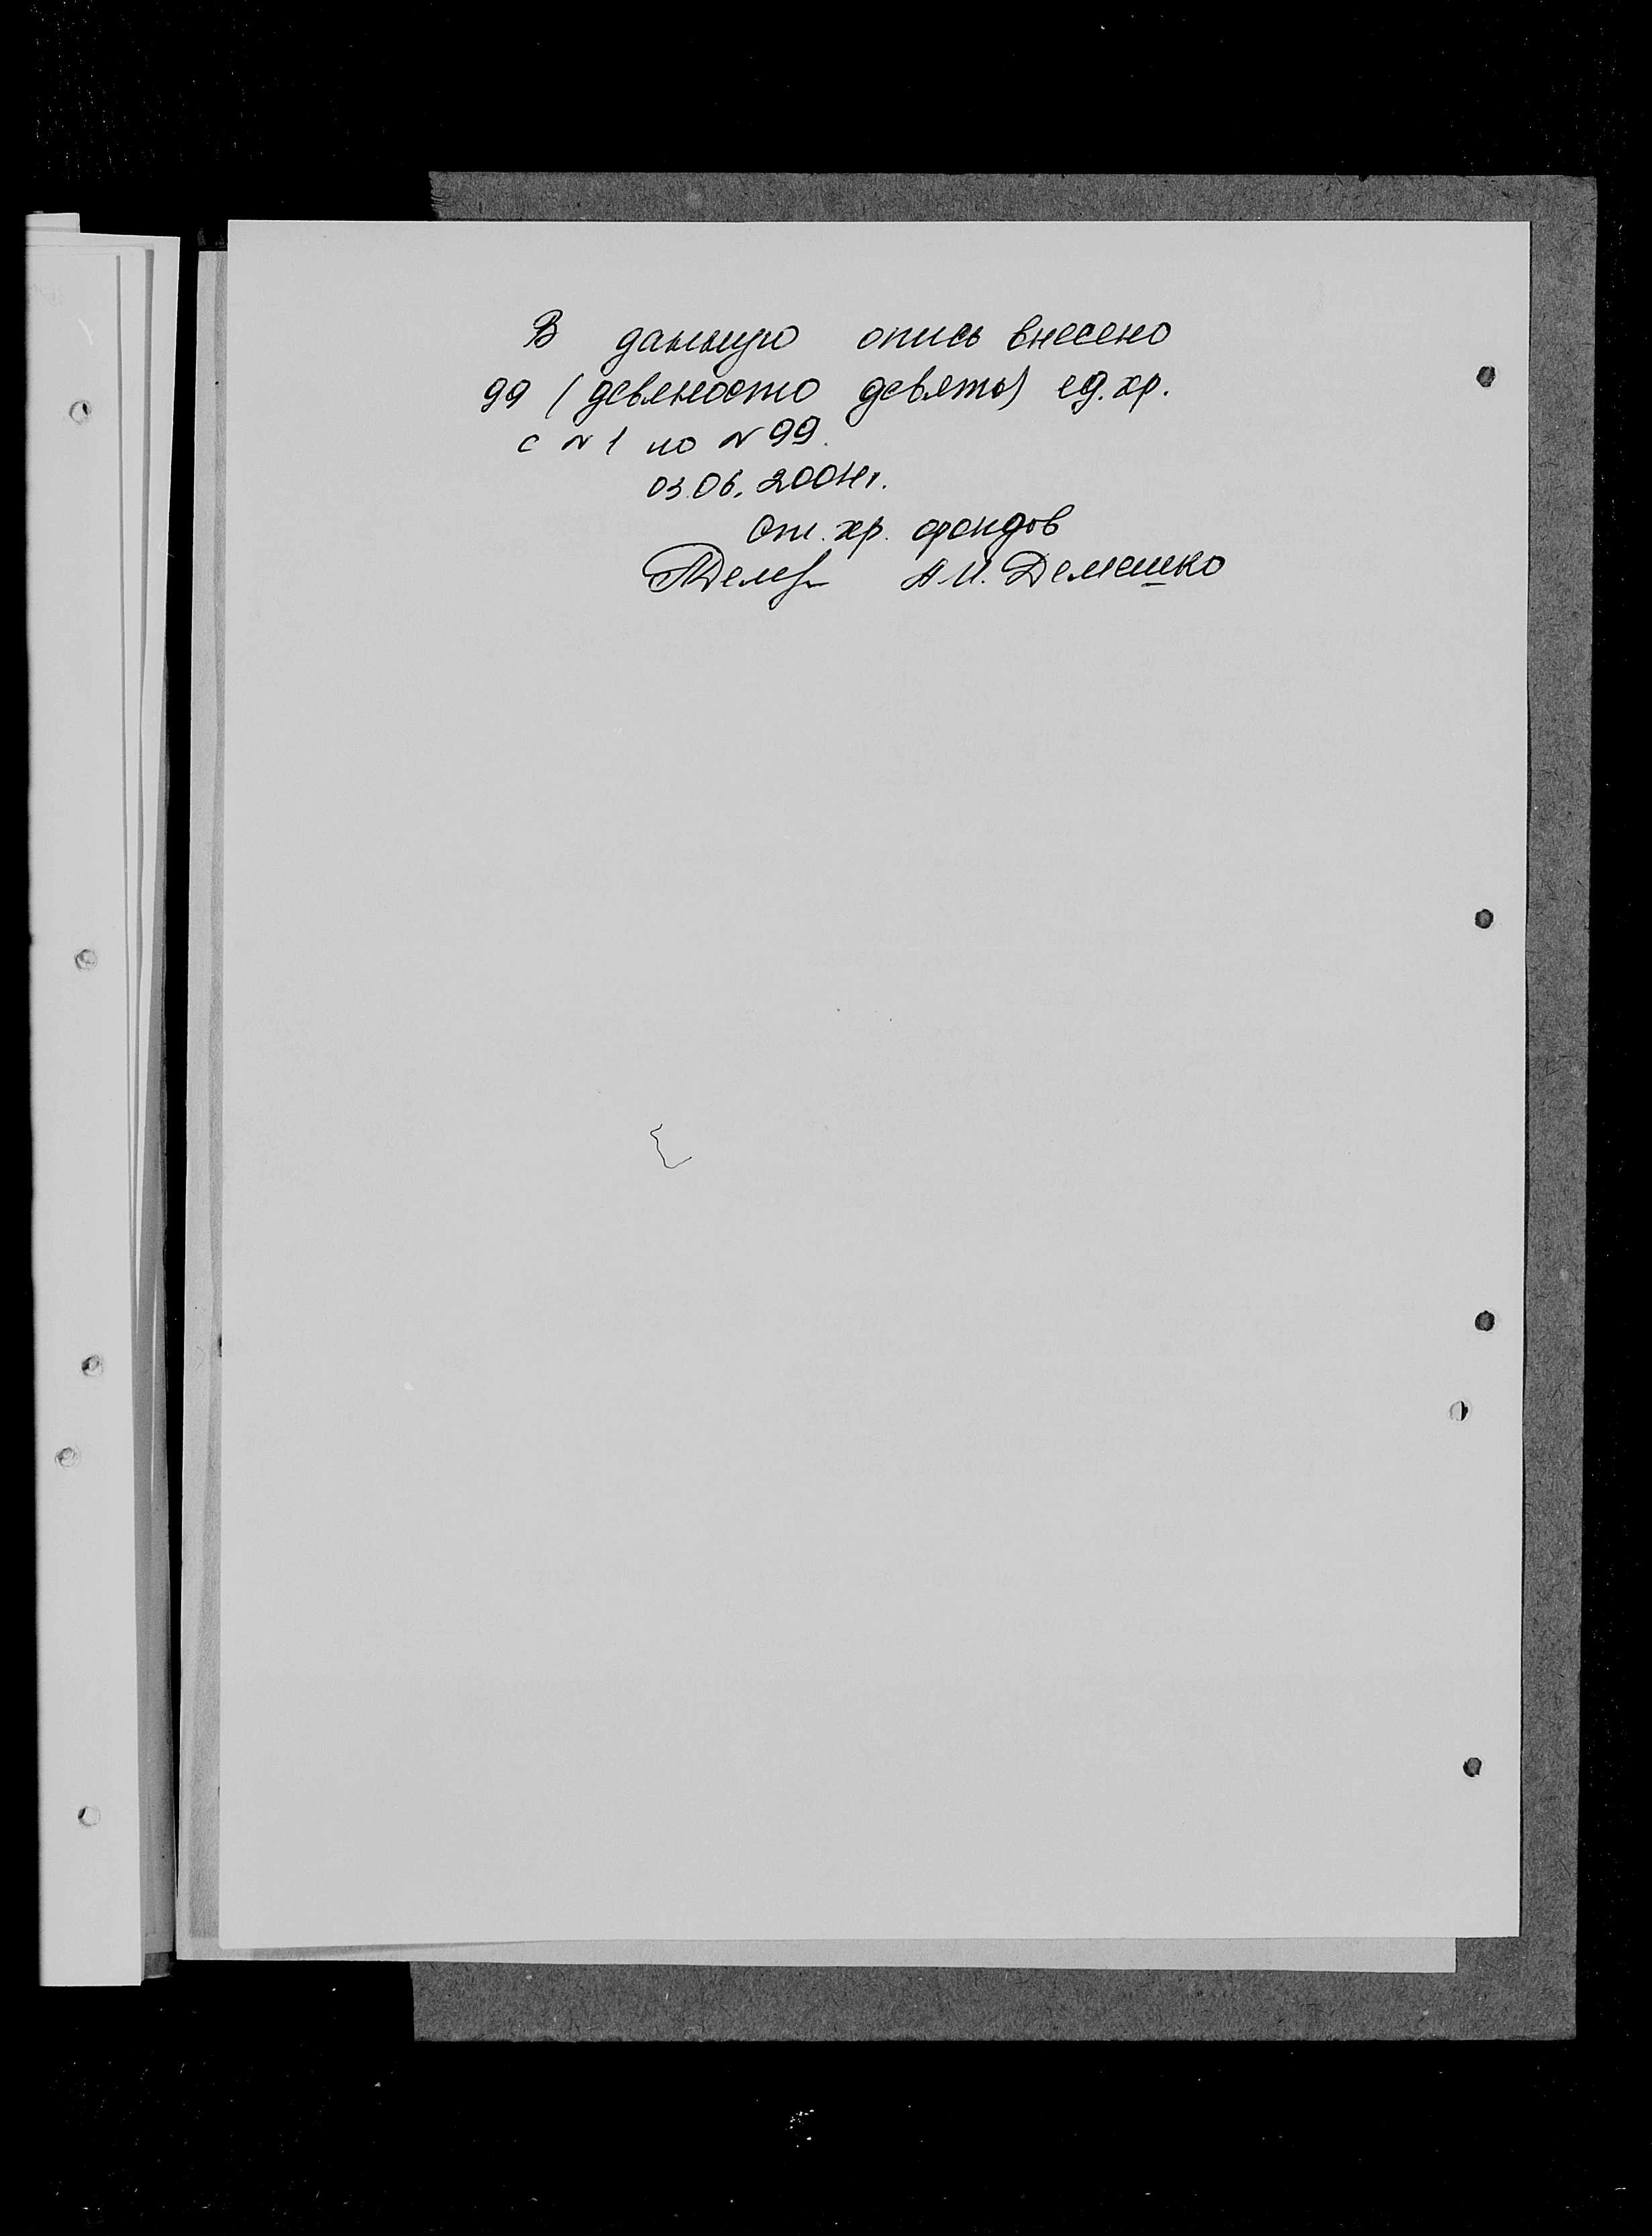 В данную опись внесено
99 (девяносто девять) ед. хр.
с № 1 по № 99.
03.06.2004г.
хр. фондов
А.И. Демешко